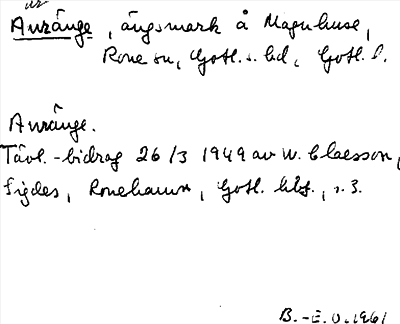 Anränge, ängsmark å Magnhuse,
Rone sn, Gotl. s. hd, Gotl. l.
Anränge.
Tävl.-bidrag 26/3 1949 av W. Claesson,
Sigdes, Ronehamn, Gotl. hbf., s. 3.
B.-E. O. 1961